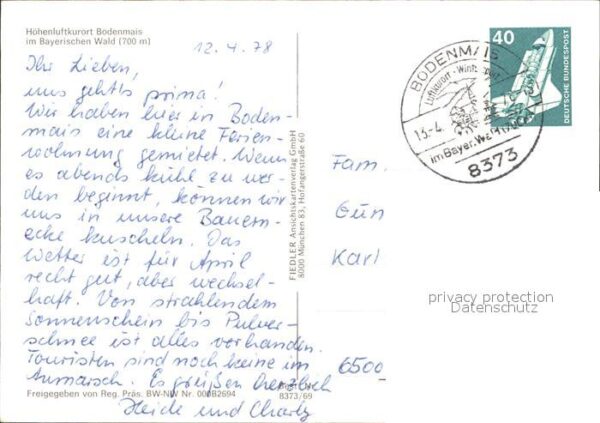 Höhenluftkurort Bodenmais
im Bayerischen Wald (700 m)
12.4.78
Ihr Lieben,
uns geht's prima!
Wir haben hier in Boden-
mais eine kleine Ferien-
wohnung gemietet. Wenn
es abends kühl zu wer-
den beginnt, können wir
uns in unsere Bauern-
ecke kuscheln. Das
Wetter ist für April
recht gut, aber wechsel-
haft. Von strahlendem
Sonnenschein bis Pulver-
schnee ist alles vorhanden.
Touristen sind noch keine im
Anmarsch. Es grüßen herzlich
Heide und Charly
Freigegeben von Reg. Präs. BW-NW Nr. 000B2694
8373/69
FIEDLER Ansichtskartenverlag GmbH
8000 München 83, Hofangerstraße 60
BODENMAIS
Luftkurort - Wintersport
13.-4.
im Bayer. Wald
8373
40
DEUTSCHE BUNDESPOST
Fam.
Gün
Karl
6500
privacy protection
Datenschutz